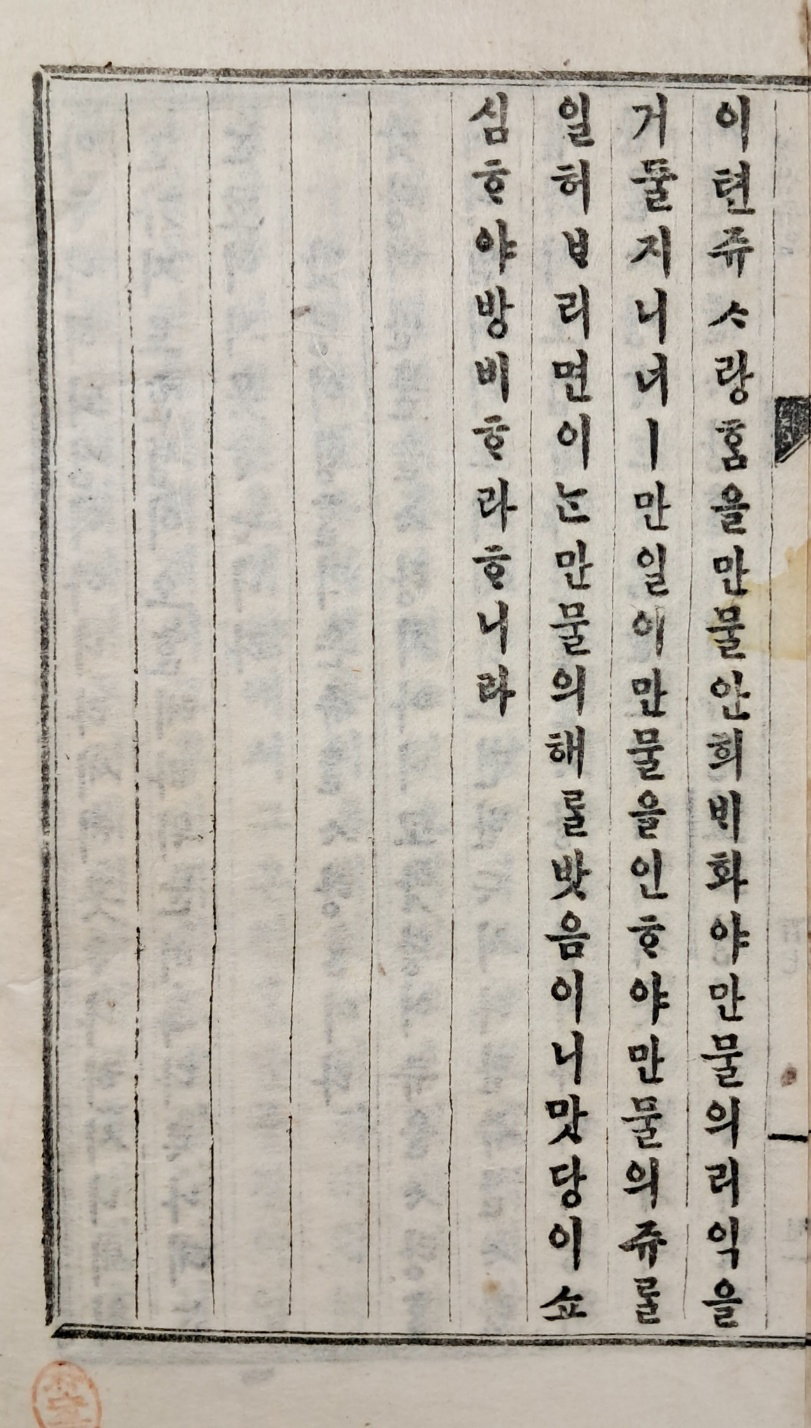 이텬쥬ᄉᆞ랑홈을만물안희ᄇᆡ화야만물의리익을
거둘지니네ㅣ만일이만물을인ᄒᆞ야만물의쥬ᄅᆞᆯ
일허ᄇᆞ리면이ᄂᆞᆫ만물의해ᄅᆞᆯ밧음이니맛당이죠
심ᄒᆞ야방비ᄒᆞ라ᄒᆞ니라